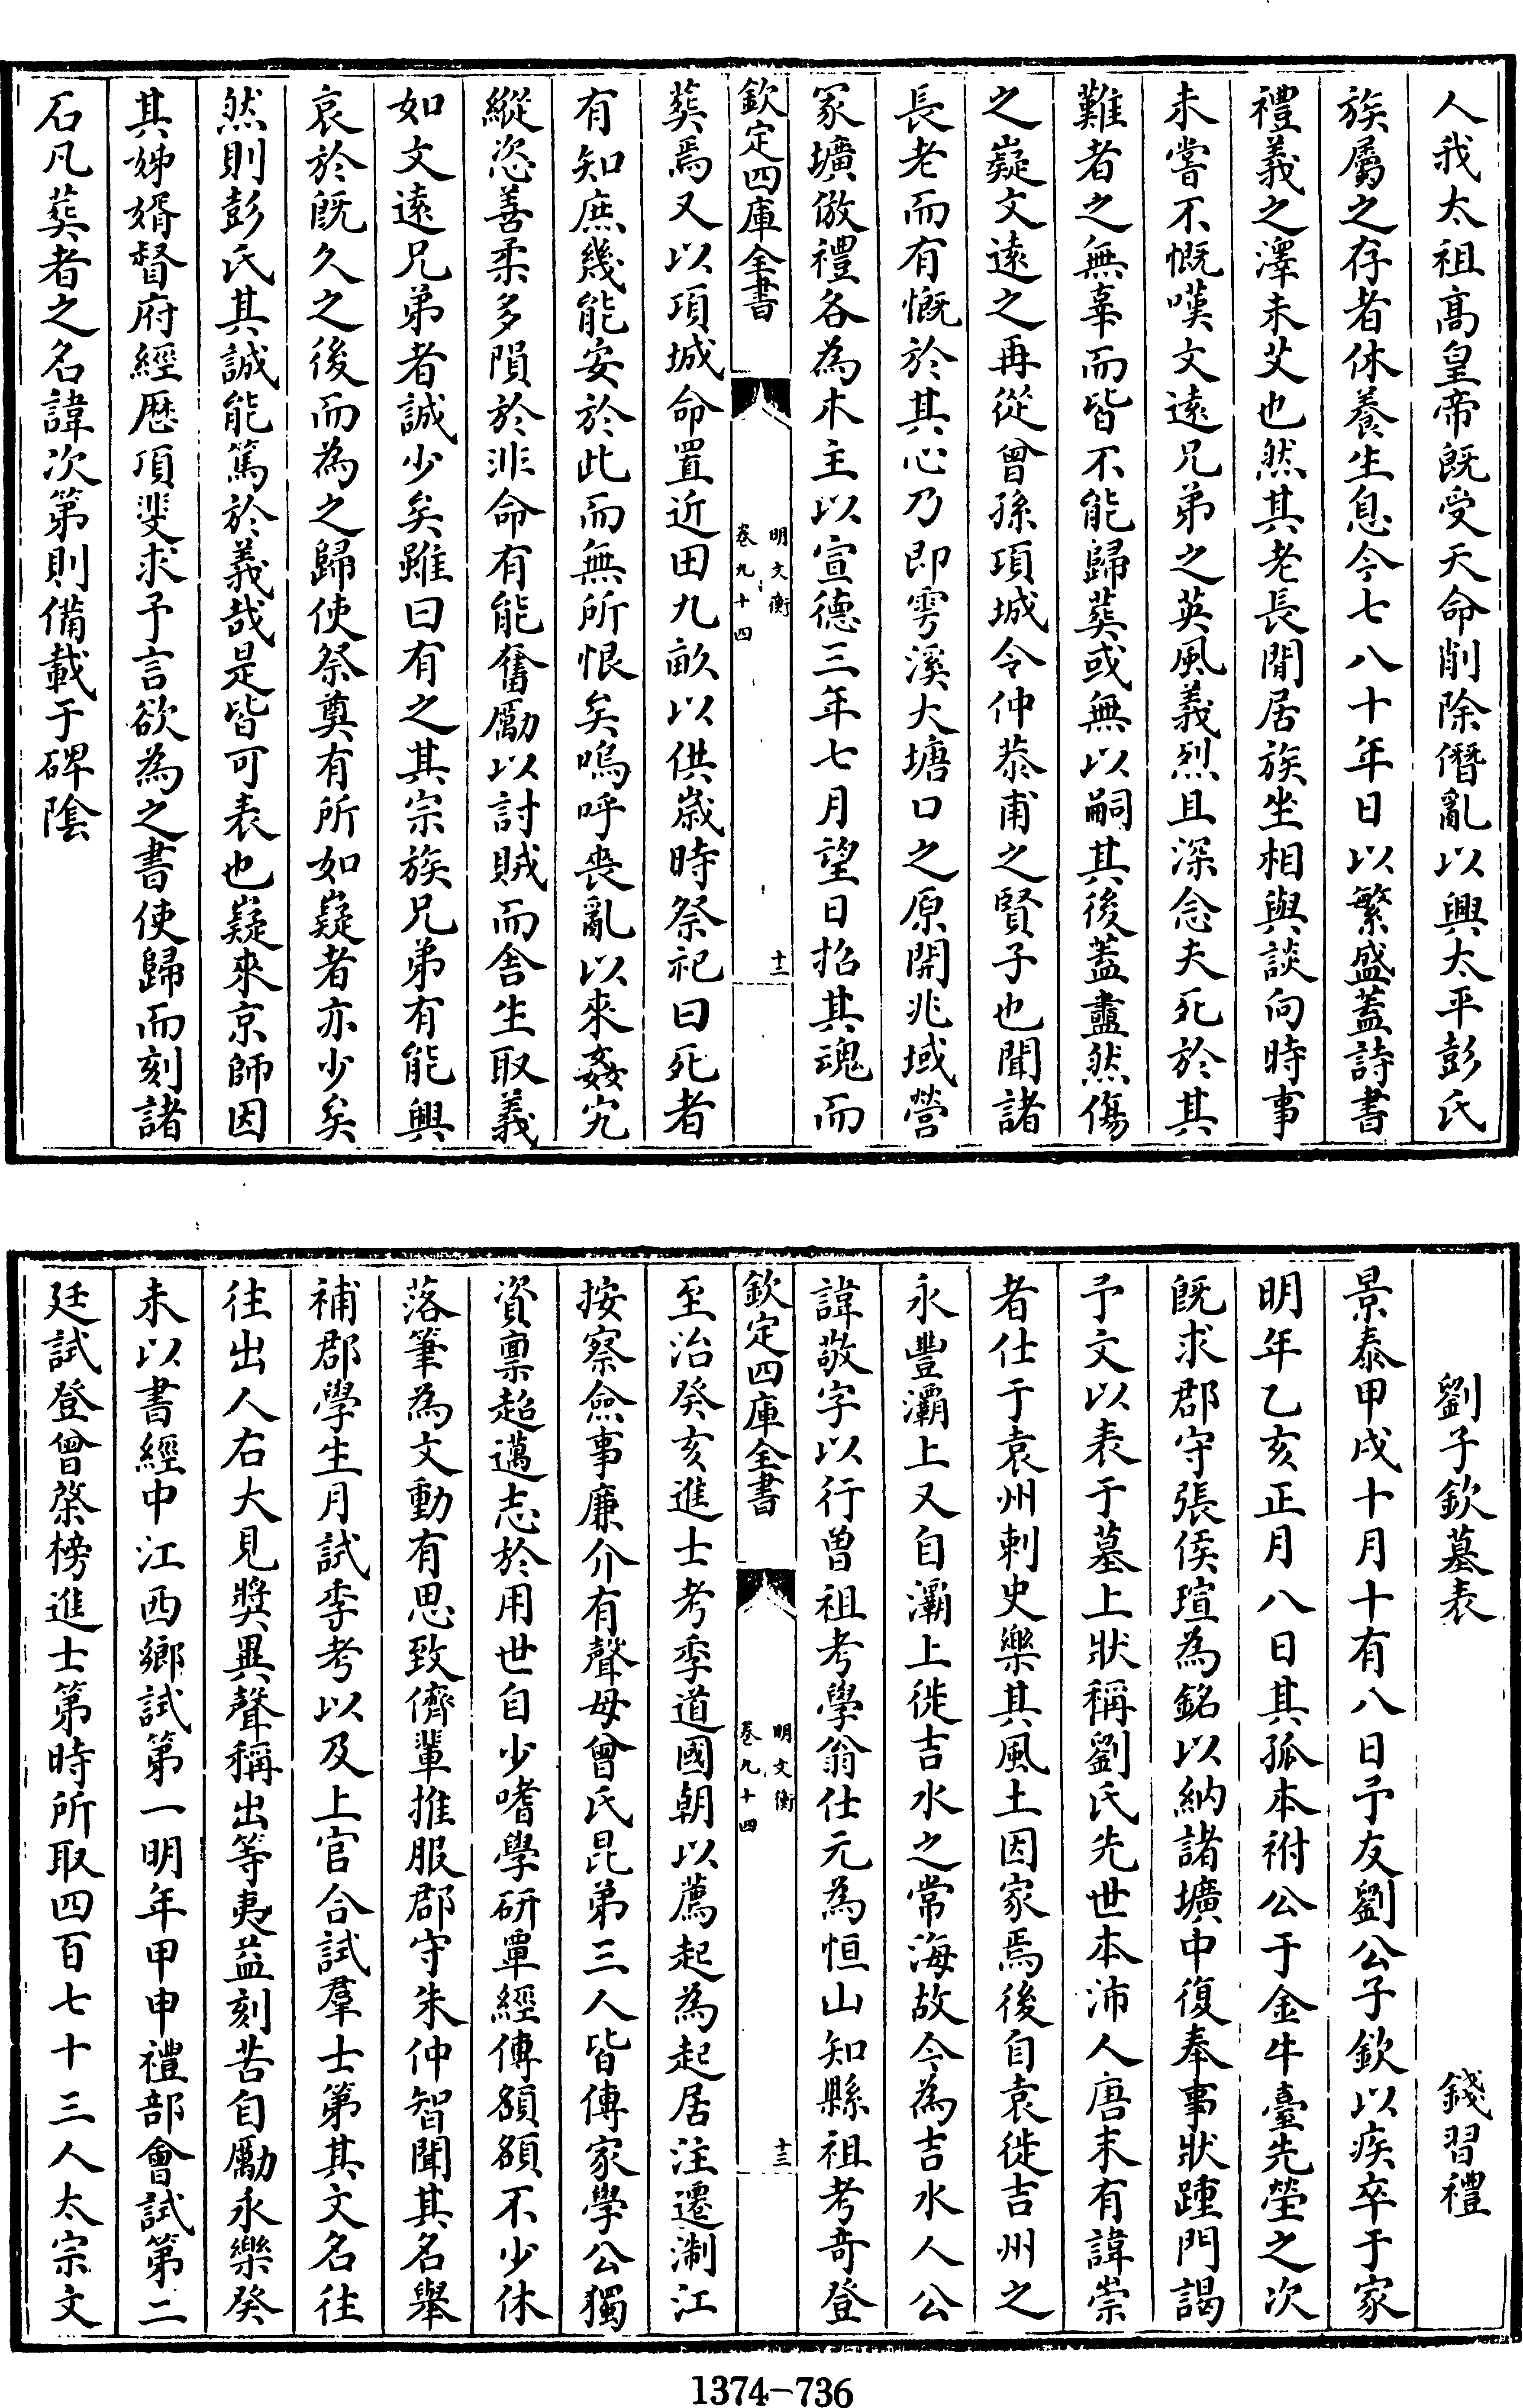 人我太祖高皇帝既受天命削除僭亂以興太平彭氏
族屬之存者休養生息今七八十年日以繁盛蓋詩書
禮義之澤未艾也然其老長閒居族坐相與談向時事
未嘗不慨嘆文遠兄弟之英風義烈且深念夫死於其
難者之無辜而皆不能歸葬或無以嗣其後蓋盡然傷
之嶷文遠之再從曾孫項城令仲恭甫之賢子也聞諸
長老而有慨於其心乃即雩溪大塘口之原開兆域營
冢壙倣禮各為木主以宣德三年七月望日招其魂而
欽定四庫全書
明文衡
卷九十四
十二
葬焉又以項城命置近田九畝以供歲時祭祀曰死者
有知庶幾能安於此而無所恨矣嗚呼喪亂以來姦宄
縱恣善柔多隕於非命有能奮勵以討賊而舍生取義
如文遠兄弟者誠少矣雖曰有之其宗族兄弟有能興
哀於既久之後而為之歸使祭奠有所如嶷者亦少矣
然則彭氏其誠能篤於義哉是皆可表也嶷來京師因
其姊婿督府經歷項斐求予言欲為之書使歸而刻諸
石凡葬者之名諱次第則備載于碑陰
劉子欽墓表 錢習禮
景泰甲戌十月十有八日予友劉公子欽以疾卒于家
明年乙亥正月八日其孤本祔公于金牛臺先塋之次
既求郡守張侯瑄為銘以納諸壙中復奉事狀踵門謁
予文以表于墓上狀稱劉氏先世本沛人唐末有諱崇
者仕于袁州刺史樂其風土因家焉後自袁徙吉州之
永豐灞上又自灞上徙吉水之常海故今為吉水人公
諱敬字以行曾祖考學翁仕元為恒山知縣祖考奇登
欽定四庫全書
明文衡
卷九十四
十三
至治癸亥進士考季道國朝以薦起為起居注遷淛江
按察僉事廉介有聲母曾氏昆弟三人皆傳家學公獨
資稟超邁志於用世自少嗜學研覃經傳額額不少休
落筆為文動有思致儕輩推服郡守朱仲智聞其名舉
補郡學生月試季考以及上官合試羣士第其文名往
往出人右大見獎異聲稱出等夷益刻苦自勵永樂癸
未以書經中江西鄉試第一明年甲申禮部會試第二
廷試登曾棨榜進士第時所取四百七十三人太宗文
1374-736